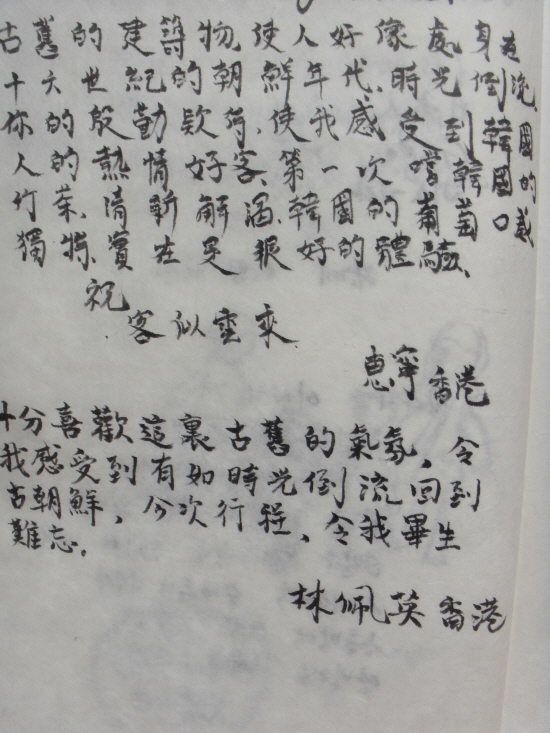 古舊的建築物使人好像處身在
十六世紀的朝鮮年代.時光倒流.
你的殷勤款待.使我感受到韓國
人的熱情好客.第一次嚐韓國的
竹葉,清新解渴.韓國的葡萄口感
獨特.實在是很好的體驗.
祝
客似雲來
惠寧 香港
十分喜歡這裏古舊的氣氛,令
我感受到有如時光倒流回到
古朝鮮,今次行程,令我畢生
難忘.
林佩英 香港